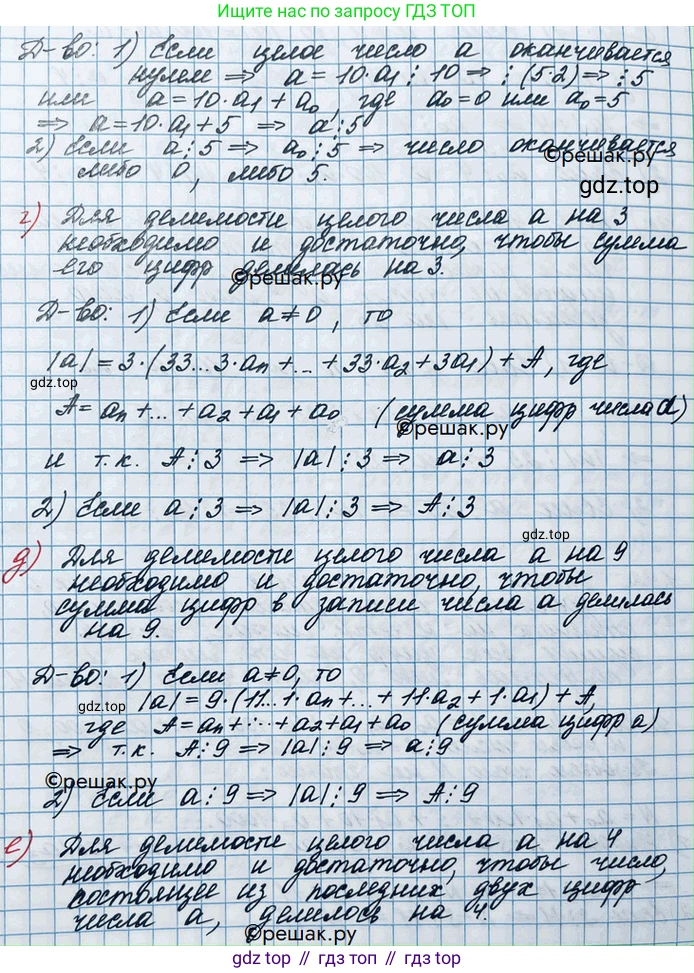 Ищите нас по запросу ГДЗ ТОП
Д-во: 1) Если целое число a оканчивается
нулем => a = 10·a₁ ⋮ 10 => ⋮ (5·2) => ⋮ 5
или a = 10·a₁ + a₀, где a₀=0 или a₀=5
=> a = 10·a₁ + 5 => a ⋮ 5
2) Если a ⋮ 5 => a₀ ⋮ 5 => число оканчивается
©reшак.ру
либо 0, либо 5.
gdz.top
г) Для делимости целого числа a на 3
необходимо и достаточно, чтобы сумма
его цифр делилась на 3.
©reшак.ру
Д-во: 1) Если a ≠ 0, то
|a| = 3·(33...3·aₙ + ... + 33·a₂ + 3a₁) + A, где
gdz.top
A = aₙ + ... + a₂ + a₁ + a₀ (сумма цифр числа a)
©reшак.ру
и т.к. A ⋮ 3 => |a| ⋮ 3 => a ⋮ 3
2) Если a ⋮ 3 => |a| ⋮ 3 => A ⋮ 3
gdz.top
д) Для делимости целого числа a на 9
необходимо и достаточно, чтобы
сумма цифр в записи числа a делилась
на 9.
Д-во: 1) Если a ≠ 0, то
gdz.top |a| = 9·(11...1·aₙ + ... + 11·a₂ + 1·a₁) + A,
где A = aₙ + ... + a₂ + a₁ + a₀ (сумма цифр a)
=> т.к. A ⋮ 9 => |a| ⋮ 9 => a ⋮ 9
©reшак.ру
2) Если a ⋮ 9 => |a| ⋮ 9 => A ⋮ 9
е) Для делимости целого числа a на 4
необходимо и достаточно, чтобы число,
состоящее из последних двух цифр
числа a, делилось на 4.
©reшак.ру
gdz.top // gdz.top // gdz.top